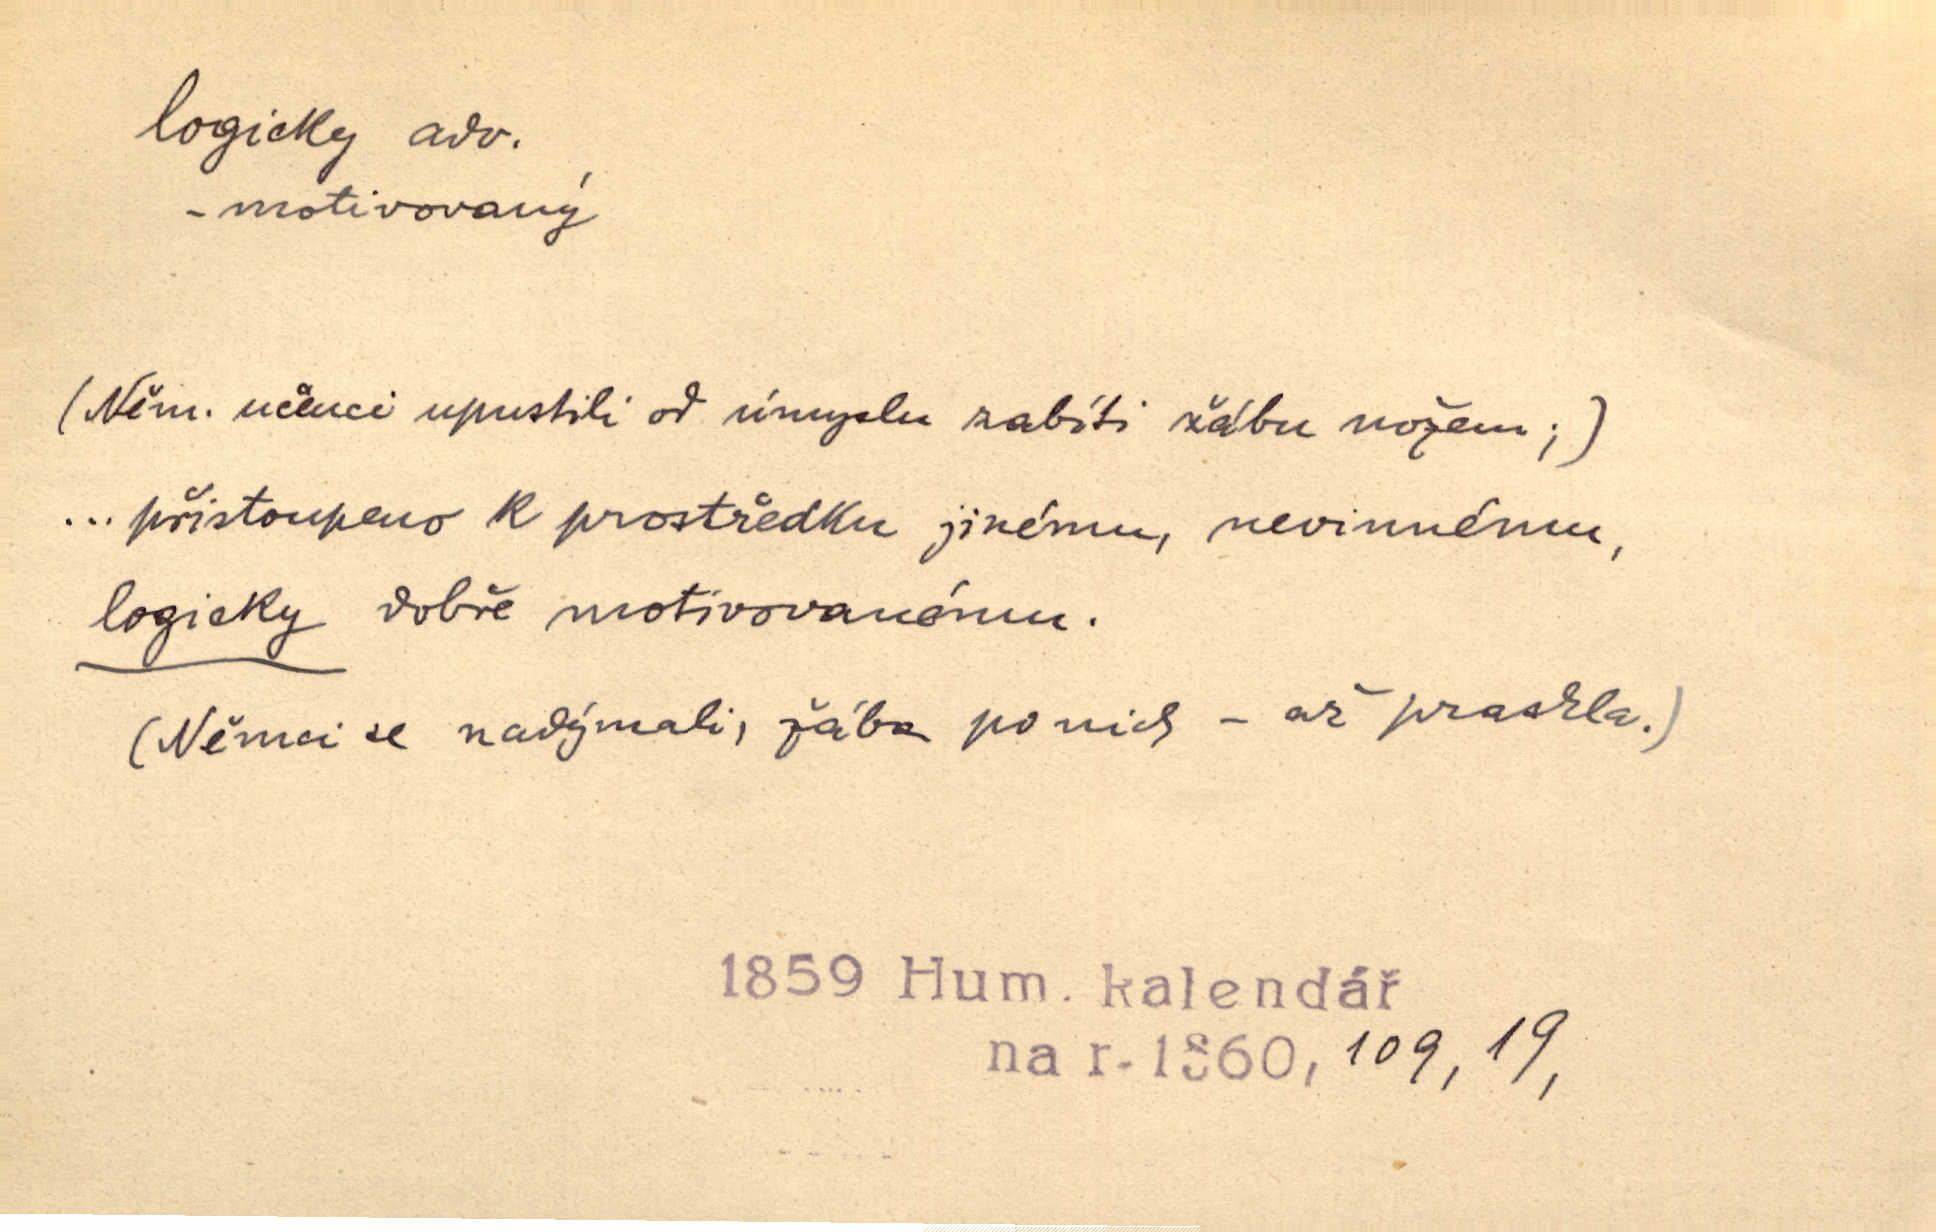 logicky adv.
- motivovaný
(Něm. učenci upustili od úmyslu zabíti žábu nožem;)
... přistoupeno k prostředku jinému, nevinnému,
logicky dobře motivovanému.
(Němci se nadýmali, žába po nich - až praskla.)
1859 Hum. kalendář
na r. 1860, 109, 19,